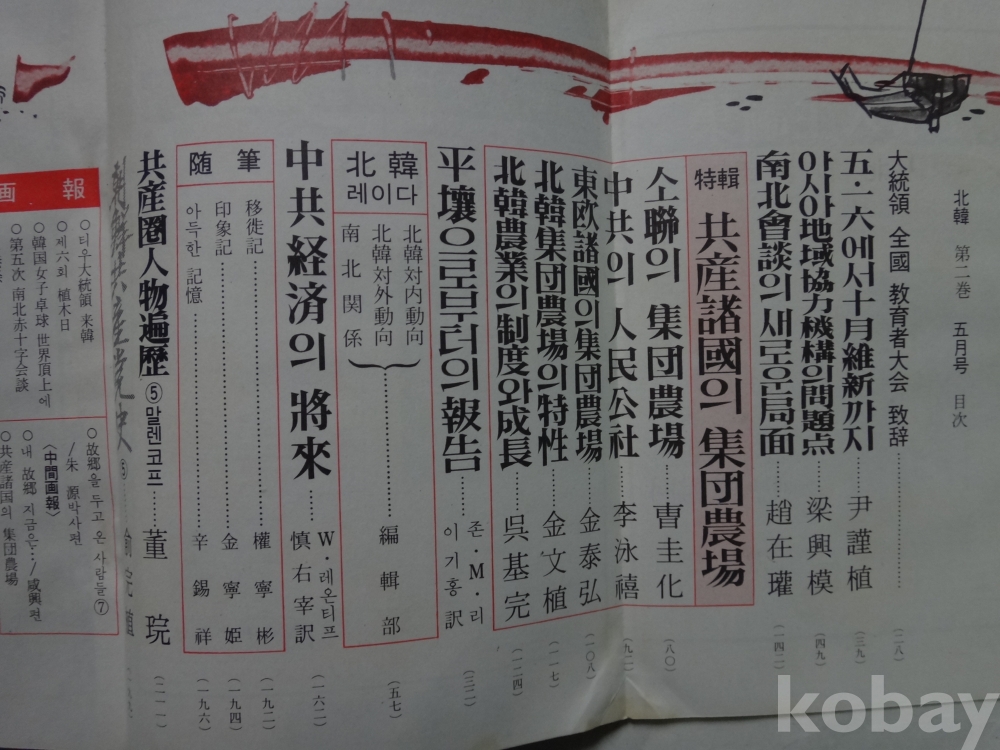 北韓 第二卷 五月号 目次
大統領 全國 教育者大会 致辞……(二八)
五·一六에서 十月維新까지……尹謹植 (三九)
아시아地域協力機構의 問題点……梁興模 (四九)
南北會談의 새로운 局面……趙在瓘 (一四二)
特輯 共産諸國의 集団農場
소聯의 集団農場……曺圭化 (八〇)
中共의 人民公社……李泳禧 (九二)
東欧諸國의 集団農場……金泰弘 (一〇八)
北韓集団農場의 特性……金文植 (一一七)
北韓農業의 制度와 成長……呉基完 (一二四)
平壤으로부터의 報告……존·M·리 이기홍 訳 (三二)
北韓레이다
北韓対内動向
北韓対外動向
南北関係
……編輯部 (五七)
中共経済의 將來……W·레온티프 慎右宰 訳 (一六二)
随筆
移徙記……權寧彬 (一九二)
印象記……金寧姫 (一九四)
아득한 記憶……辛錫祥 (一九六)
共産圏人物遍歴 ⑤말렌코프……董 院 (二一一)
画報
○ 티우大統領 来韓
○ 제六회 植木日
○ 韓国女子卓球 世界頂上에
○ 第五次 南北赤十字会談
○ 故郷을 두고 온 사람들⑦
/朱 源박사편
〈中間画報〉
○ 내 故郷 지금은…/咸興편
○ 共産諸国의 集団農場
kobay